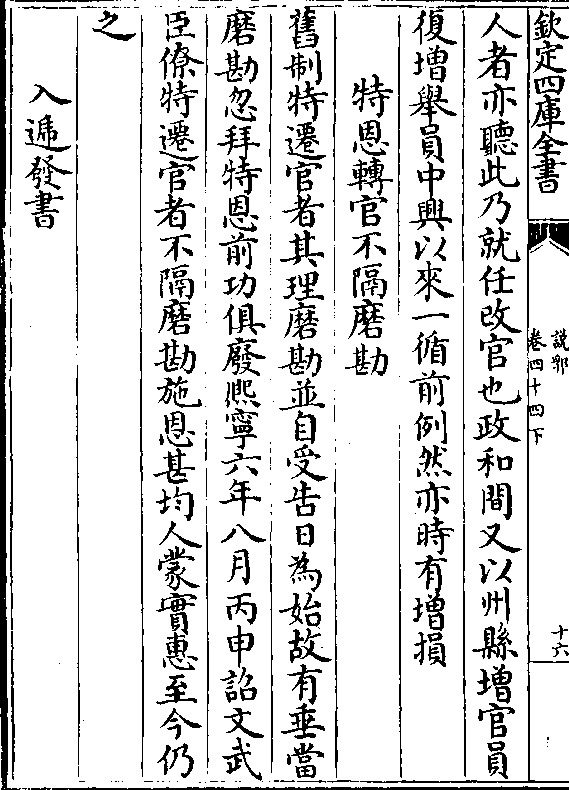 欽定四庫全書
説郛
卷四十四下
十六
人者亦聽此乃就任改官也政和間又以州縣增官員
復增舉員中興以來一循前例然亦時有增損
特恩轉官不隔磨勘
舊制特遷官者其理磨勘並自受告日為始故有垂當
磨勘忽拜特恩前功俱廢熈寧六年八月丙申詔文武
臣僚特遷官者不隔磨勘施恩甚均人蒙實惠至今仍
之
入遞發書